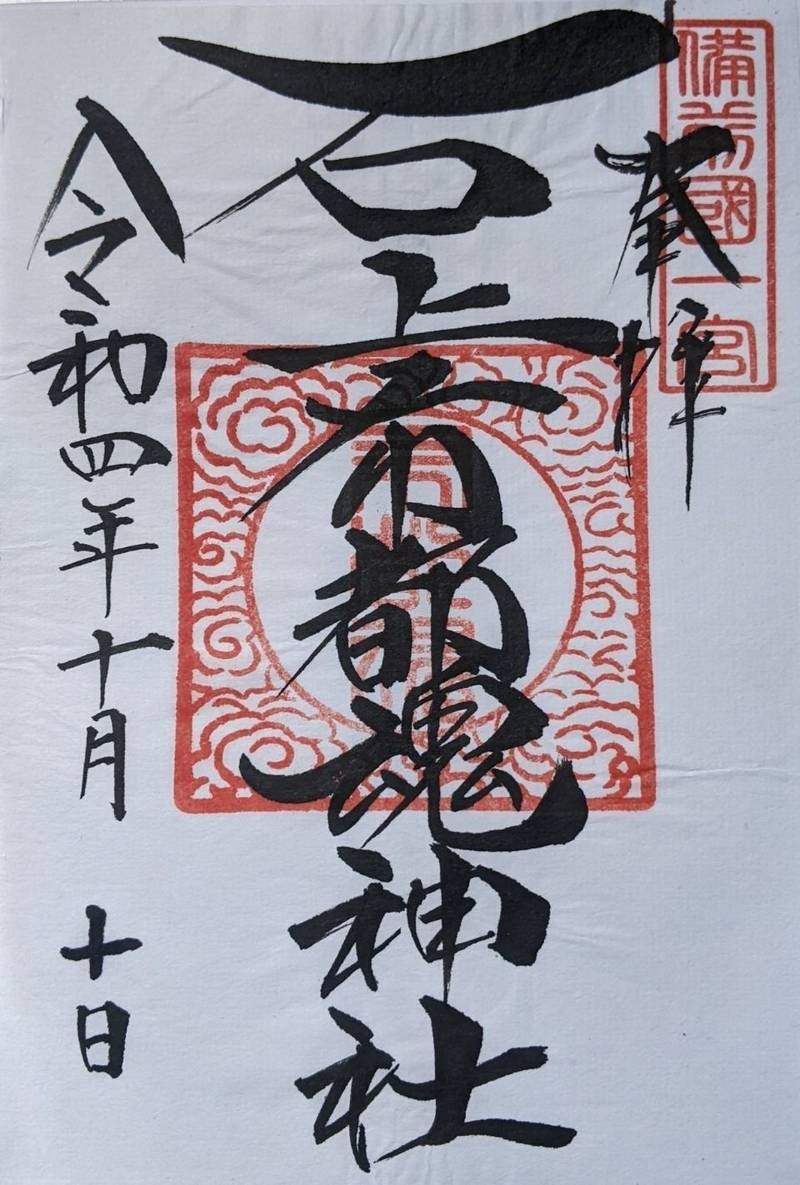 備前國一宮
奉拝
石上布都魂神社
令和四年十月十日